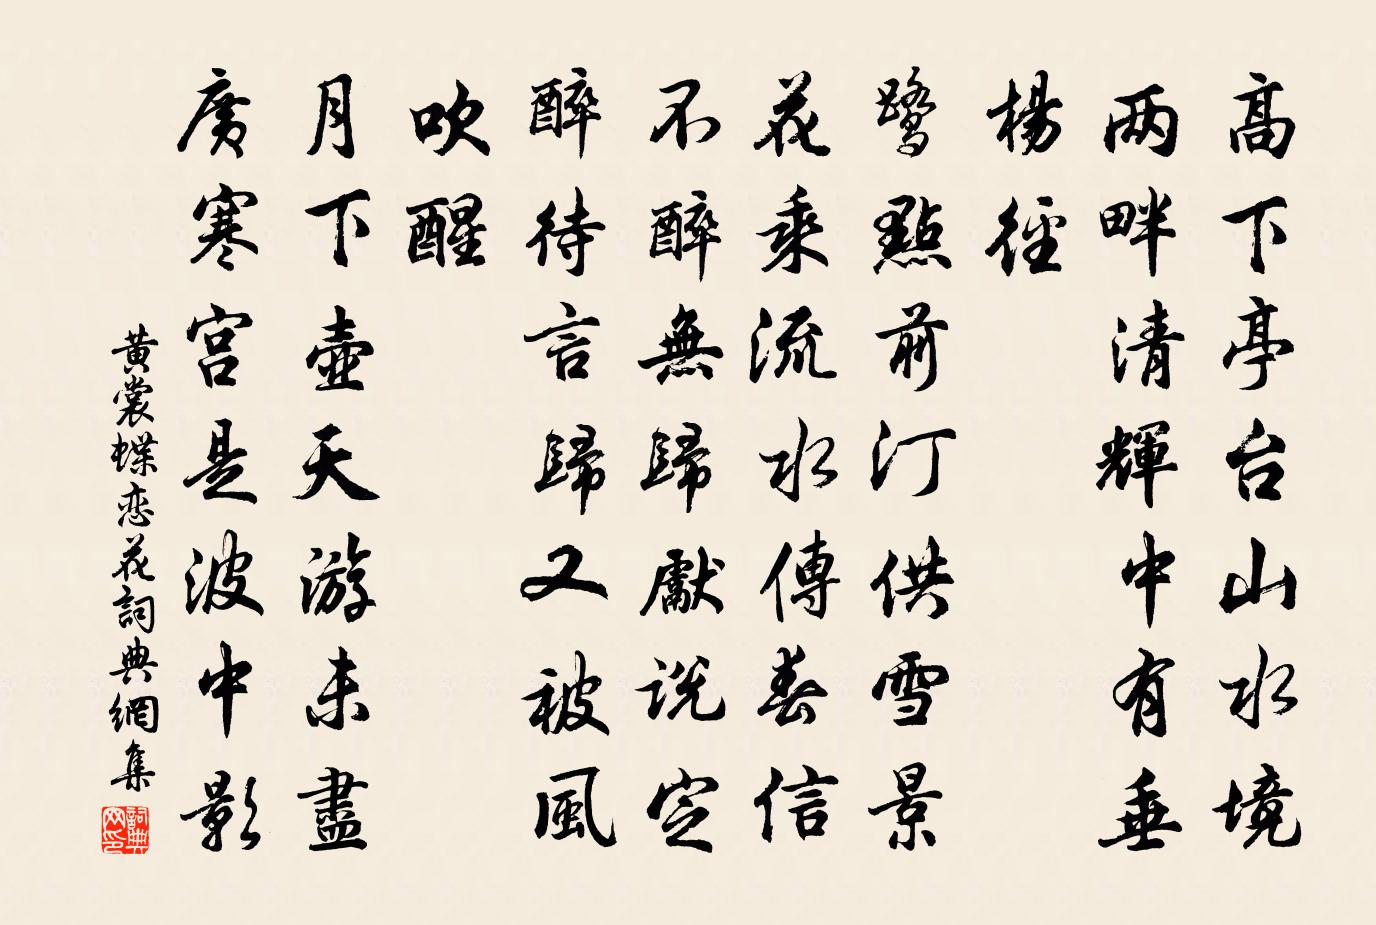 高下亭台山水境
两畔清輝中有垂
楊徑
鹭點前汀供雪景
花乘流水傳春信
不醉無歸獻说定
醉待言歸又被風
吹醒
月下壺天游未盡
廣寒宮是波中影
黄裳蝶恋花詞典網集